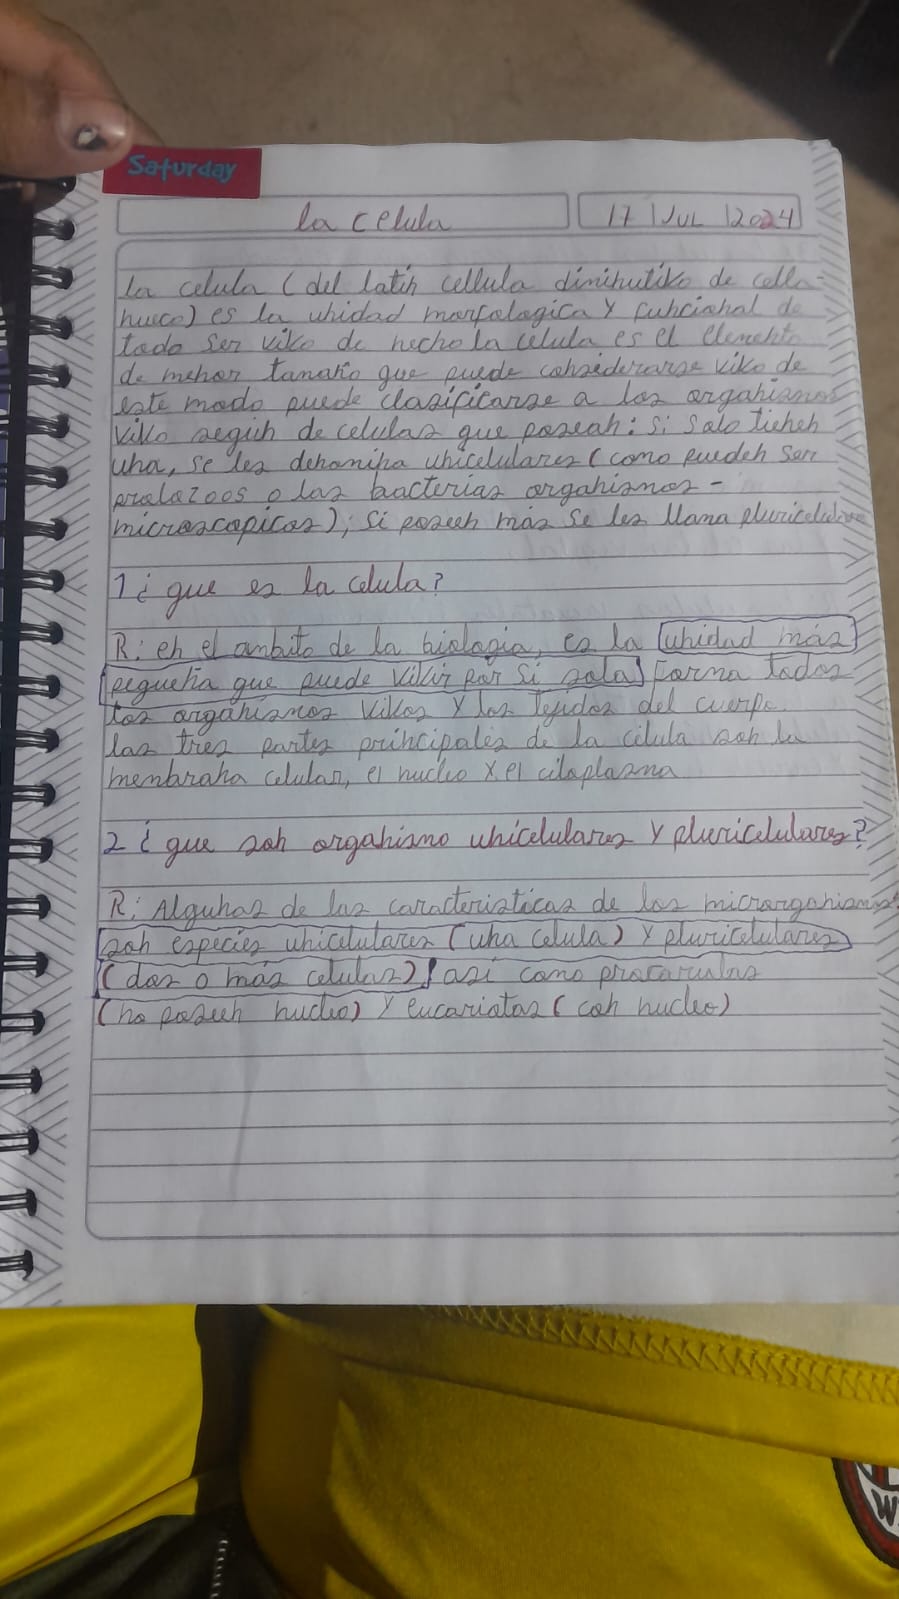 Saturday
la celula
17 JUL 2024
la celula (del latin cellula diminutivo de cella-
hueco) es la unidad morfologica y funcional de
todo ser vivo de hecho la celula es el elemento
de menor tamaño que puede considerarse vivo de
este modo puede clasificarse a los organismos
vivo segun de celulas que posean: si solo tienen
una, se les denomina unicelulares (como pueden ser
o las bacterias organismos -
microscopicos); si poseen más se les llama pluricelulares
1 ¿ que es la celula?
R: en el ambito de la biologia, es la unidad más
pequeña que puede vivir por si sola Forma todos
los organismos vivos y los tejidos del cuerpo.
las tres partes principales de la celula son la
menbrana celular, el nucleo y el citoplasma
2 ¿ que son organismo unicelulares y pluricelulares?
R: Algunas de las caracteristicas de los microrganismos
son especies unicelulares (una celula) y pluricelulares
(dos o más celulas), asi como
(no poseen nucleo) y eucariotas (con nucleo)